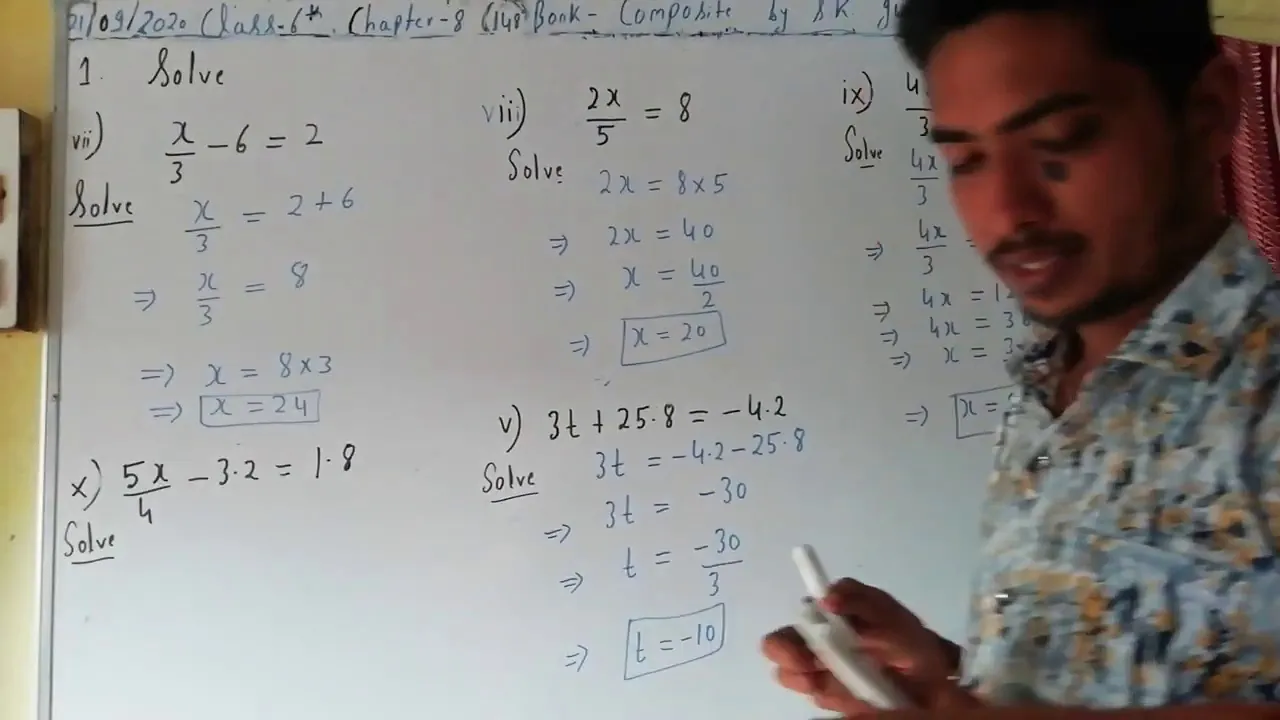 21/09/2020 Class-6th. Chapter-8 (148) Book- Composite by SK
1. Solve
vii) x/3 - 6 = 2
Solve
x/3 = 2 + 6
⇒ x/3 = 8
⇒ x = 8 × 3
⇒ x = 24
x) 5x/4 - 3.2 = 1.8
Solve
viii) 2x/5 = 8
Solve
2x = 8 × 5
⇒ 2x = 40
⇒ x = 40/2
⇒ x = 20
v) 3t + 25.8 = -4.2
Solve
3t = -4.2 - 25.8
⇒ 3t = -30
⇒ t = -30/3
⇒ t = -10
ix)
Solve
4x/3
⇒ 4x/3 =
⇒ 4x =
⇒ 4x =
⇒ x =
⇒ x =